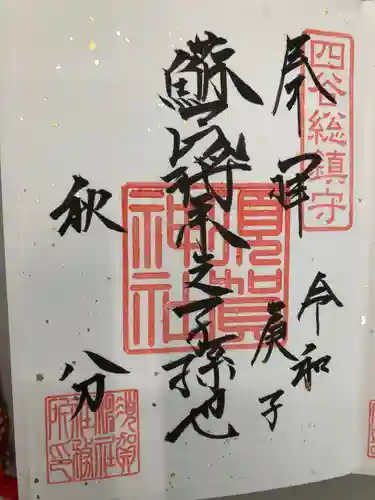 四谷総鎮守
奉拝
令和
庚子
蘇民将来之子孫也
須賀
神社
秋分
須賀
神社
社務
所印